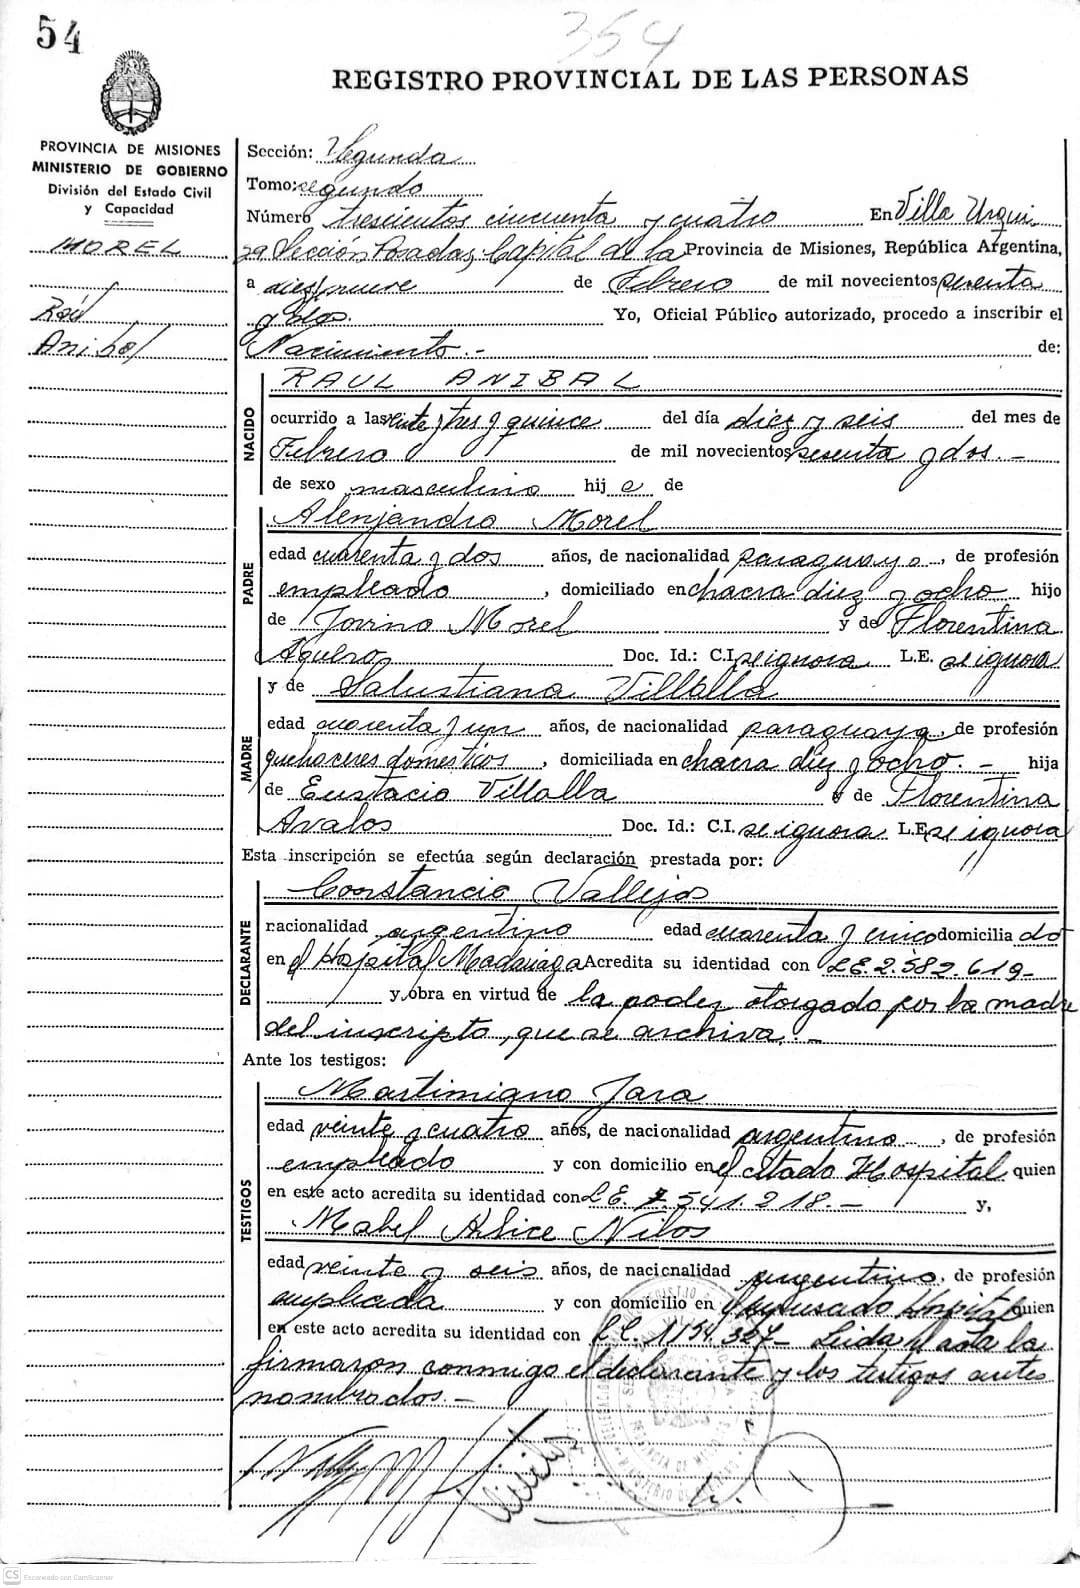 54
354
REGISTRO PROVINCIAL DE LAS PERSONAS
PROVINCIA DE MISIONES
MINISTERIO DE GOBIERNO
División del Estado Civil
y Capacidad
MOREL
Raúl
Anibal
Sección: Segunda
Tomo: segundo
Número trescientos cincuenta y cuatro En Villa Urqui
za Sección Posadas, Capital de la Provincia de Misiones, República Argentina,
a diez y nueve de Febrero de mil novecientos sesenta
y dos. Yo, Oficial Público autorizado, procedo a inscribir el
Nacimiento.- de:
NACIDO
RAUL ANIBAL
ocurrido a las veinte y tres y quince del día diez y seis del mes de
Febrero de mil novecientos sesenta y dos.-
de sexo masculino hij o de
PADRE
Alenjandro Morel
edad cuarenta y dos años, de nacionalidad paraguayo, de profesión
empleado, domiciliado en chacra diez y ocho hijo
de Jovino Morel y de Florentina
Aquero Doc. Id.: C.I. se ignora L.E. se ignora
y de Salustiana Villalla
MADRE
edad cuarenta y un años, de nacionalidad paraguaya, de profesión
quehaceres domésticos, domiciliada en chacra diez y ocho.- hija
de Eustacio Villalla y de Florentina
Avalos Doc. Id.: C.I. se ignora L.E. se ignora
Esta inscripción se efectúa según declaración prestada por:
DECLARANTE
Constancio Vallejos
nacionalidad argentino edad cuarenta y cinco domicilia do
en el Hospital Madariaga Acredita su identidad con L.E. 2.582.619-
y obra en virtud de la poder otorgado por la madre
del inscripto, que se archiva.-
Ante los testigos:
TESTIGOS
Martimiano Jara
edad veinte y cuatro años, de nacionalidad argentino, de profesión
empleado y con domicilio en el citado Hospital quien
en este acto acredita su identidad con L.E. 7.541.218.- y,
Mabel Alice Nilos
edad veinte y seis años, de nacionalidad argentino, de profesión
empleada y con domicilio en el Hospital quien
en este acto acredita su identidad con L.C. 1.154.327- Leida el acta la
firmaron conmigo el declarante y los testigos antes
nombrados.-
CS Escaneado con CamScanner